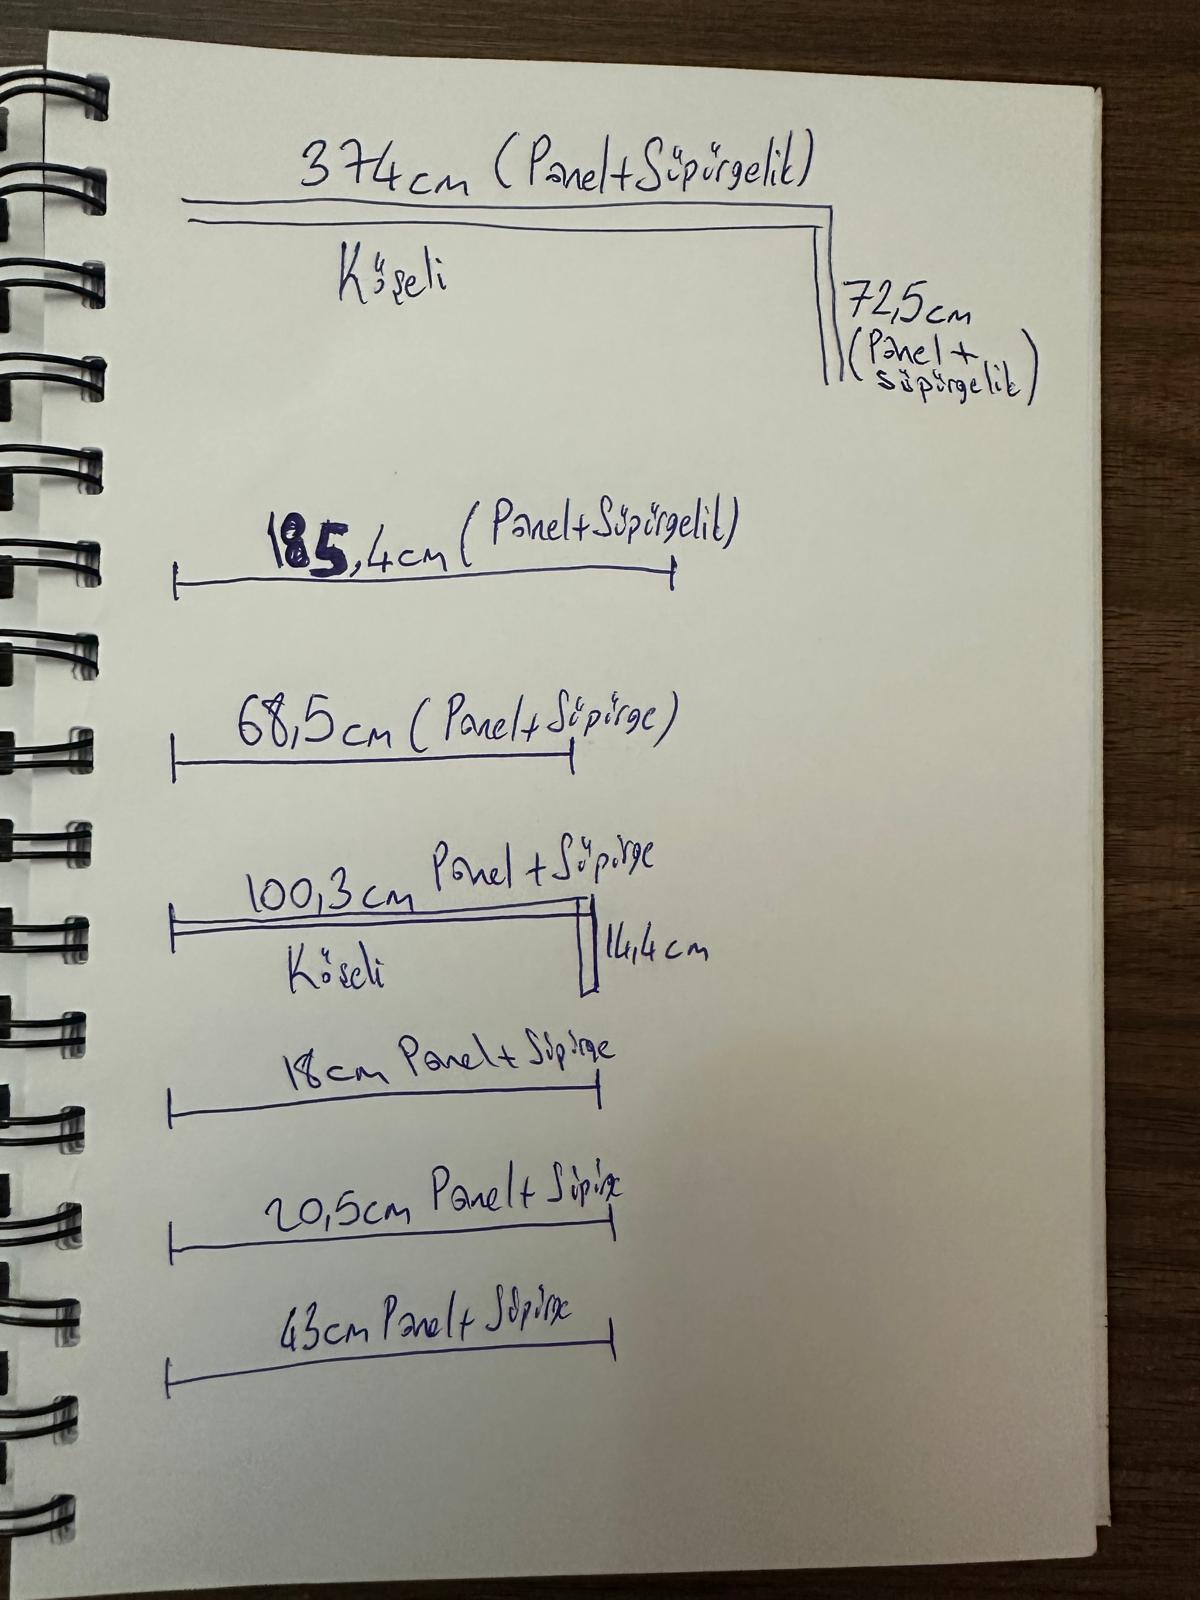 374cm (Panel+Süpürgelik)
Köşeli
72,5cm
(Panel+
süpürgelik)
185,4cm (Panel+Süpürgelik)
68,5cm (Panel+Süpürge)
100,3cm Panel+Süpürge
Köşeli
14,4cm
18cm Panel+Süpürge
20,5cm Panel+Süpürge
43cm Panel+Süpürge